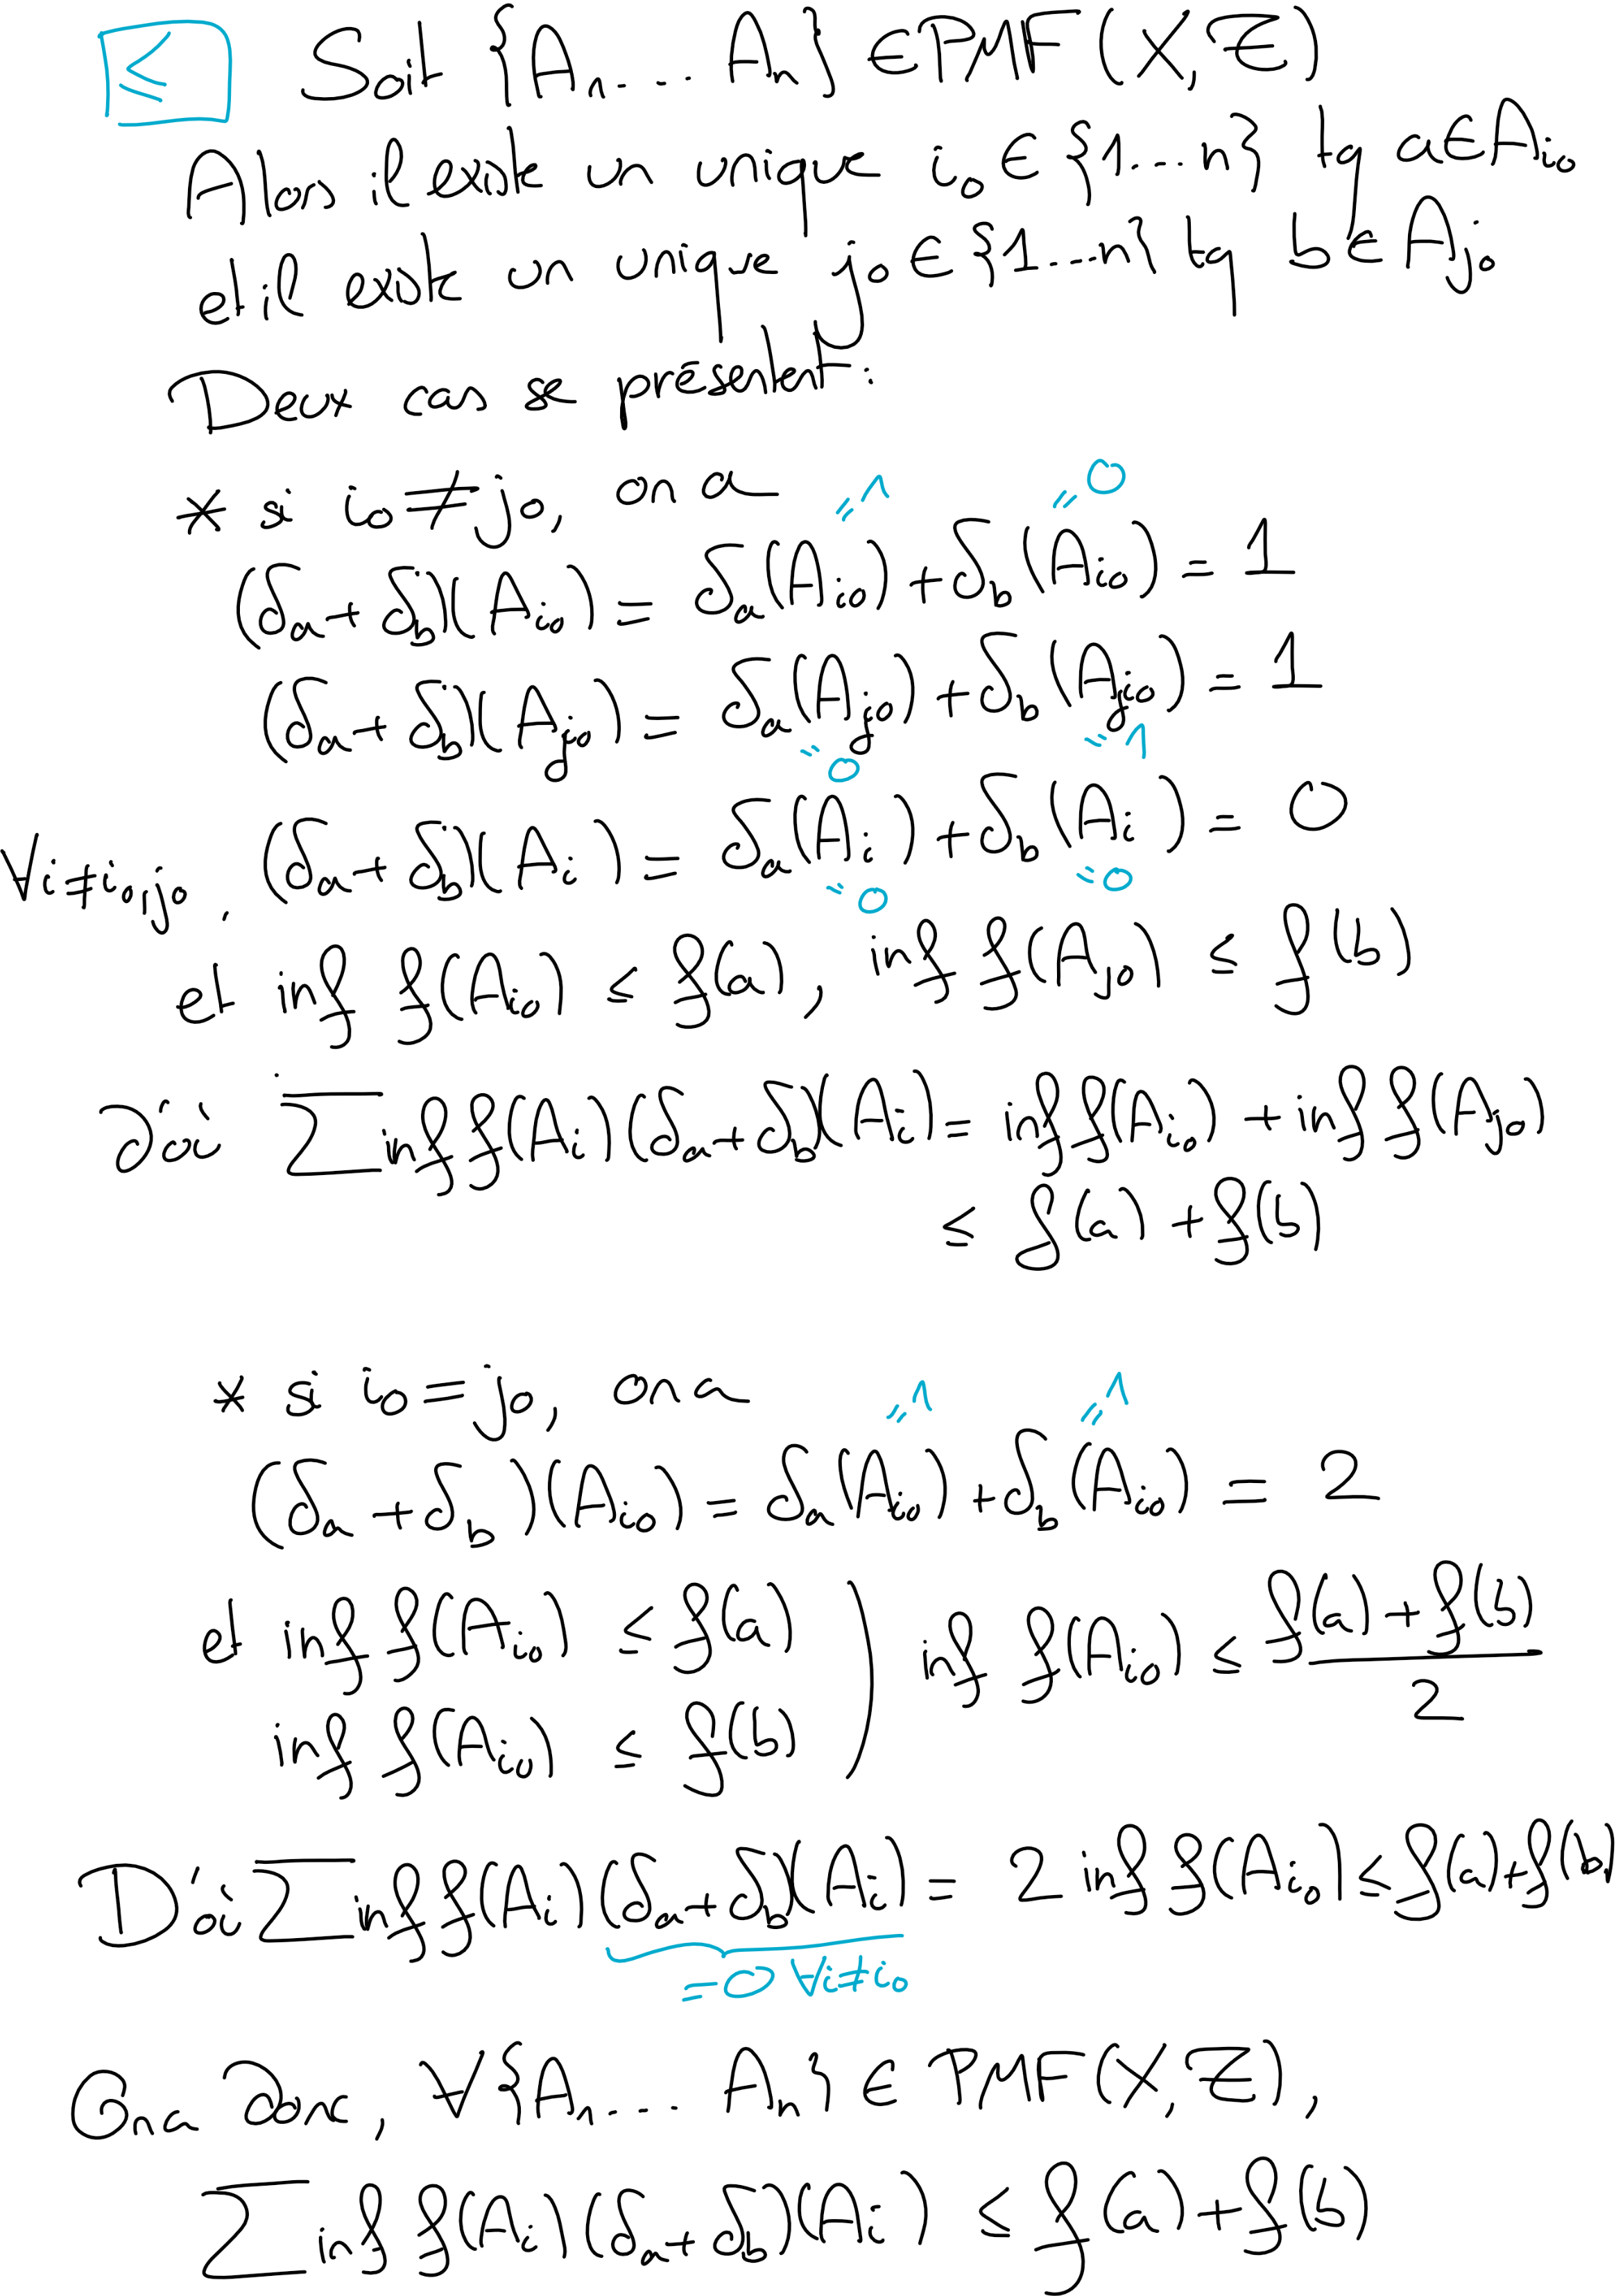 ≤ Soit {A₁ .... Aₙ} ∈ PMF(X, Z)
Alors il existe un unique i₀ ∈ {1....n} tq a ∈ A_{i₀}
et il existe un unique j₀ ∈ {1....n} tq b ∈ A_{j₀}
Deux cas se présentent:
* si i₀ ≠ j₀, on a
(δ_a + δ_b)(A_{i₀}) = δ_a(A_{i₀}) + δ_b(A_{i₀}) = 1
=1 =0
(δ_a + δ_b)(A_{j₀}) = δ_a(A_{j₀}) + δ_b(A_{j₀}) = 1
=0 =1
∀i ≠ i₀, j₀, (δ_a + δ_b)(A_i) = δ_a(A_i) + δ_b(A_i) = 0
=0 =0
et inf f(A_{i₀}) ≤ f(a), inf f(A_{j₀}) ≤ f(b)
D'où ∑ inf f(A_i)(δ_a + δ_b)(A_i) = inf f(A_{i₀}) + inf f(A_{j₀})
≤ f(a) + f(b)
* si i₀ = j₀, on a
(δ_a + δ_b)(A_{i₀}) = δ_a(A_{i₀}) + δ_b(A_{i₀}) = 2
=1 =1
et inf f(A_{i₀}) ≤ f(a)
inf f(A_{i₀}) ≤ f(b)
) inf f(A_{i₀}) ≤ (f(a) + f(b))/2
D'où ∑ inf f(A_i)(δ_a + δ_b)(A_i) = 2 inf f(A_{i₀}) ≤ f(a) + f(b)
= 0 ∀i ≠ i₀
On a donc, ∀{A₁ .... Aₙ} ∈ PMF(X, Z),
∑ inf f(A_i)(δ_a + δ_b)(A_i) ≤ f(a) + f(b)